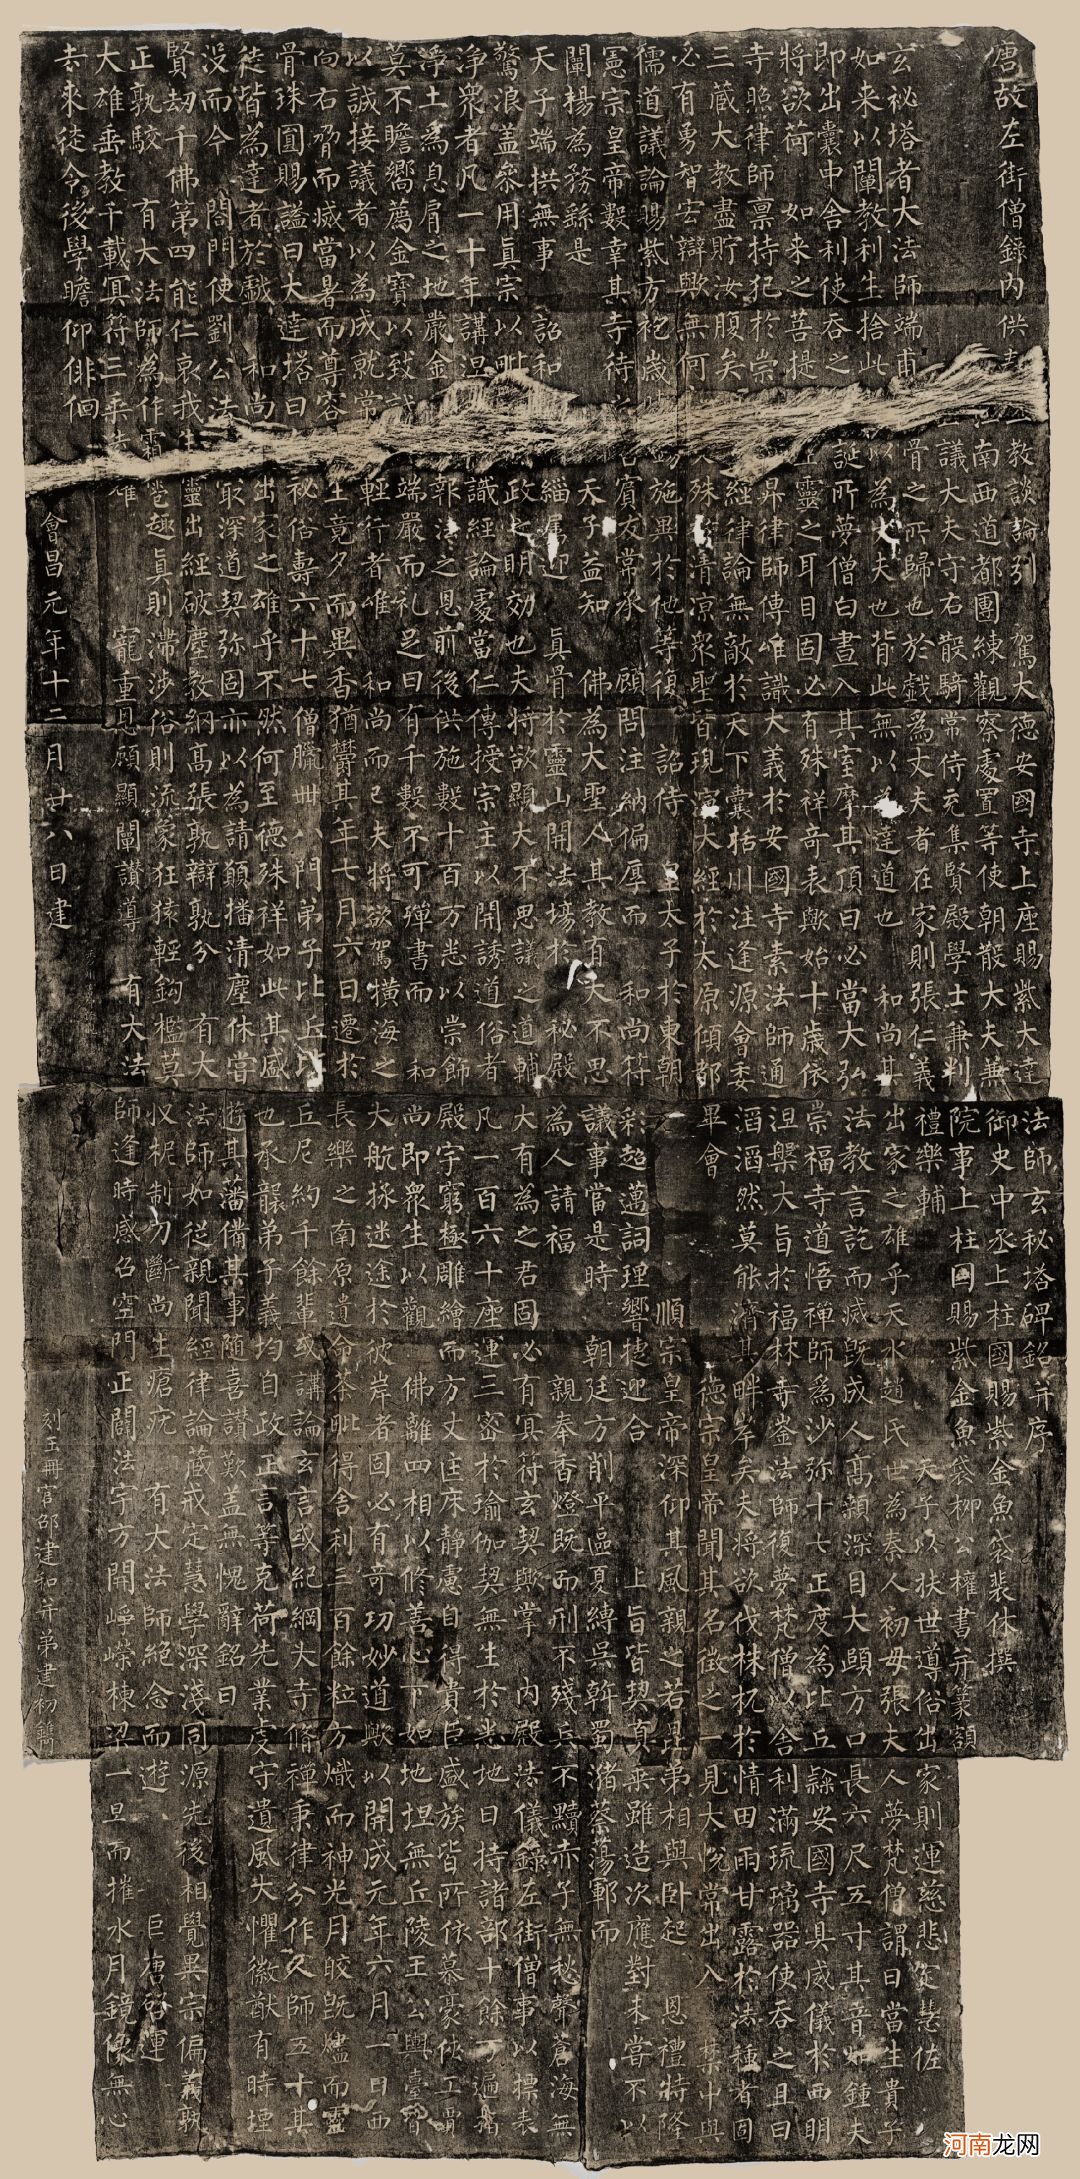 唐故左街僧錄內供 教談論引 駕大德安國寺上座賜紫大達法師玄秘塔碑銘并序
江南西道都團練觀察處置等使朝散大夫兼御史中丞上柱國賜紫金魚袋裴休撰
議大夫守右散騎常侍充集賢殿學士兼判院事上柱國賜紫金魚袋柳公權書并篆額
玄祕塔者大法師端甫 骨之所歸也於戲為丈夫者在家則張仁義禮樂輔 天子以扶世導俗出家則運慈悲定慧佐
如來以闡教利生捨此 以為丈夫也背此無以為達道也 和尚其出家之雄乎天水趙氏世為秦人初母張夫人夢梵僧謂曰當生貴子
即出囊中舍利使吞之 誕所夢僧白晝入其室摩其頂曰必當大弘法教言訖而滅既成人高顙深目大頤方口長六尺五寸其音如鍾夫
將欲荷 如來之菩提 靈之耳目固必有殊祥奇表歟始十歲依崇福寺道悟禪師為沙弥十七正度為比丘隸安國寺具威儀於西明
寺照律師稟持犯於崇 昇律師傳唯識大義於安國寺素法師通涅槃大旨於福林寺崟法師復夢梵僧以舍利滿琉璃器使吞之且曰
三藏大教盡貯汝腹矣 經律論無敵於天下囊括川注逢源會委滔滔然莫能濟其畔岸矣夫將欲伐株杌於情田雨甘露於法種者固
必有勇智宏辯歟無何 殊 清涼衆聖皆現演大經於太原傾都畢會 德宗皇帝聞其名徵之一見大悅常出入 禁中與
儒道議論賜紫方袍歲時 施異於他等復 詔侍 皇太子於東朝 順宗皇帝深仰其風親之若昆弟相與臥起 恩禮特隆
憲宗皇帝數幸其寺待 賓友常承 顧問注納偏厚而 和尚符彩超邁詞理響捷迎合 上旨皆契真乘雖造次應對未嘗不以
闡揚為務繇是 天子益知 佛為大聖人其教有大不思議事當是時 朝廷方削平區夏縛吳斡蜀瀦蔡蕩鄆而
天子端拱無事 詔和 緇屬迎 真骨於靈山開法場於 秘殿為人請福 親奉香燈既而刑不殘兵不黷赤子無愁聲蒼海無
驚浪蓋參用真宗以毗 政之明効也夫將欲顯大不思議之道輔大有為之君固必有冥符玄契歟掌 內殿法儀錄左街僧事以摽表
淨衆者凡一十年講涅 識經論處當仁傳授宗主以開誘道俗者凡一百六十座運三密於瑜伽契無生於悉地日持諸部十餘万遍指
淨土為息肩之地嚴金 報法之恩前後供施數十百万悉以崇飾殿宇窮極雕繪而方丈匡床靜慮自得貴臣盛族皆所依慕豪俠工賈
莫不瞻嚮薦金寶以致誠 端嚴而礼足日有千數不可殫書而 和尚即衆生以觀佛離四相以修善心下如地坦無丘陵王公輿臺皆
以誠接議者以為成就常 輕行者唯和尚而已夫將欲駕橫海之大航拯迷途於彼岸者固必有奇功妙道歟以開成元年六月一日西
向右脅而滅當暑而尊容 生竟夕而異香猶鬱其年七月六日遷於長樂之南原遺命荼毗得舍利三百餘粒方熾而神光月皎既燼而靈
骨珠圓賜謚曰大達塔曰 祕俗壽六十七僧臘卌八門弟子比丘比丘尼約千餘輩或講論玄言或紀綱大寺脩禪秉律分作人師五十其
徒皆為達者於戲 和尚 出家之雄乎不然何至德殊祥如此其盛也承襲弟子義均自政正言等克荷先業虔守遺風大懼徽猷有時堙
沒而今 閤門使劉公法 最深道契弥固亦以為請願播清塵休嘗遊其藩備其事隨喜讚歎蓋無愧辭銘曰
賢劫千佛第四能仁哀我生靈出經破塵教網高張孰辯孰分 有大法師如從親聞經律論藏戒定慧學深淺同源先後相覺異宗偏義孰
正孰駁 有大法師為作霜雹趣真則滯涉俗則流象狂猿輕鈎檻莫收柅制刀斷尚生瘡疣 有大法師絕念而遊 巨唐啓運
大雄垂教千載冥符三乘 耀 寵重恩顧顯闡讚導 有大法師逢時感召空門正闢法宇方開崢嶸棟梁一旦而摧水月鏡像無心
去來徒令後學瞻仰徘徊
會昌元年十二月廿八日建
刻玉冊官邵建和并弟建初鐫
河南龙网